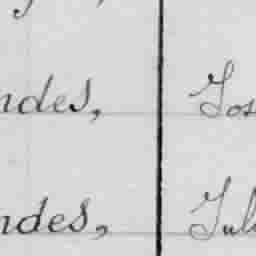 ndes, Jos
ndes, Juli